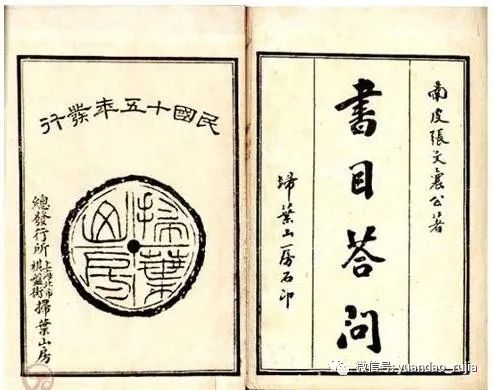 南皮張文襄公著
書目答問
掃葉山房石印
民國十五年發行
掃葉山房
總發行所
上海北市
棋盤街
掃葉山房
微信号: yuandao_rujia